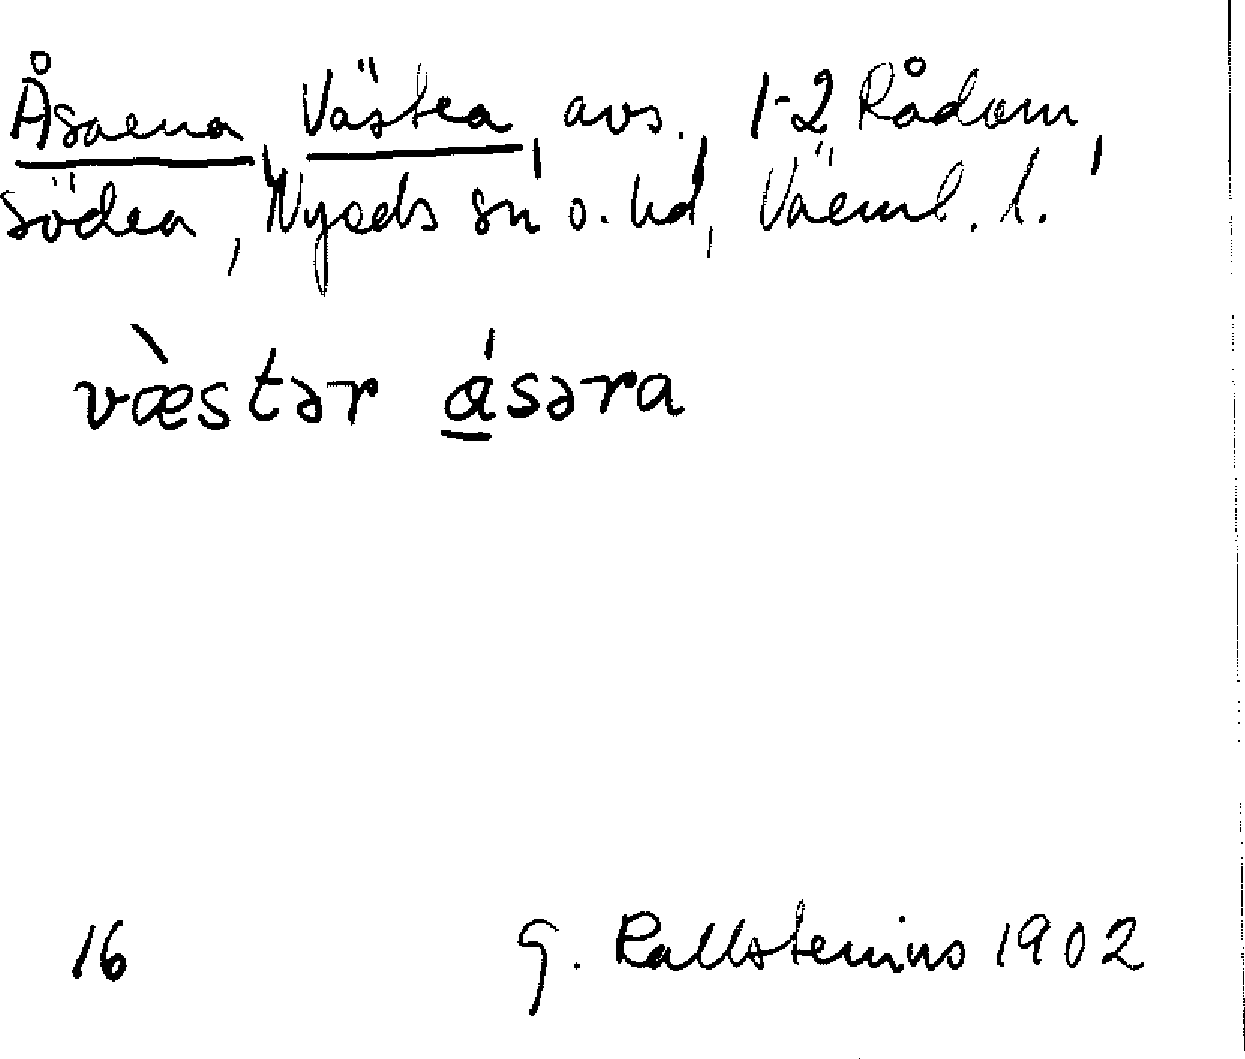 Åsarna, Västra, avs., 1-2 Rådom,
södra, Nyeds sn o. hd, Värml. l.
væ̀stər ɑ̲́səra
16 G. Kallstenius 1902